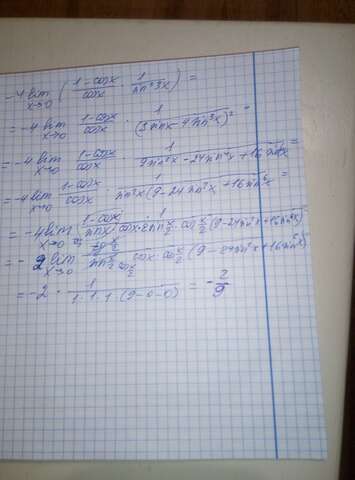 -4 lim x→0 ( (1-cosx)/cosx · 1/sin²3x ) =
= -4 lim x→0 (1-cosx)/cosx · 1/(3sinx - 4sin³x)² =
= -4 lim x→0 (1-cosx)/cosx · 1/(9sin²x - 24sin⁴x + 16sin⁶x) =
= -4 lim x→0 (1-cosx)/cosx · 1/(sin²x(9 - 24sin²x + 16sin⁴x)) =
= -4 lim x→0 (1-cosx)/sinx · 1/(cosx · 2sin x/2 · cos x/2 (9-24sin²x+16sin⁴x))
= - 2 lim x→0 cosx · cos x/2 (9 - 24sin²x + 16sin⁴x)
= -2 · 1/(1·1·1·(9-0-0)) = -2/9